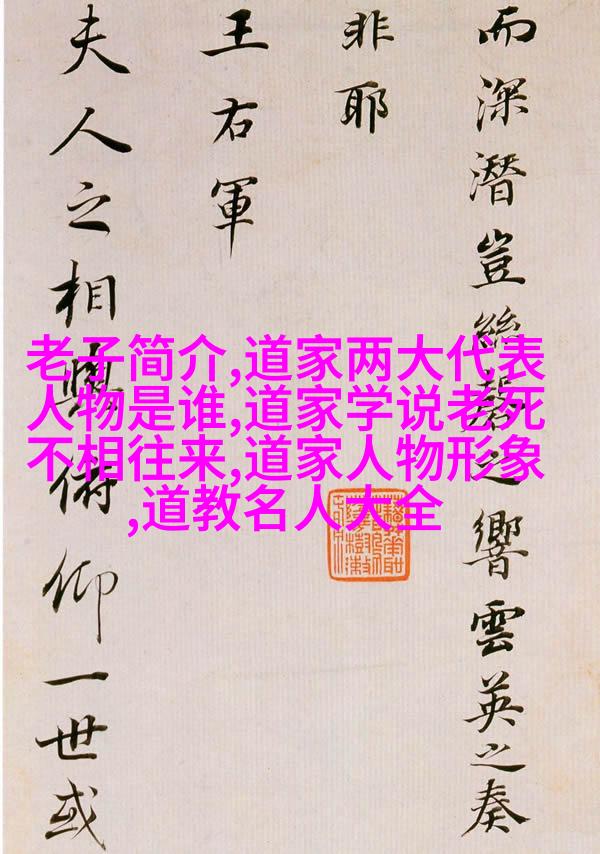 老子简介,道家两大代表
人物是谁,道家学说老死
不相往来,道家人物形象
,道教名人大全
而深潛豈絲磬之響雲英之奏
非耶
王右軍
夫人之相與俯仰一世或